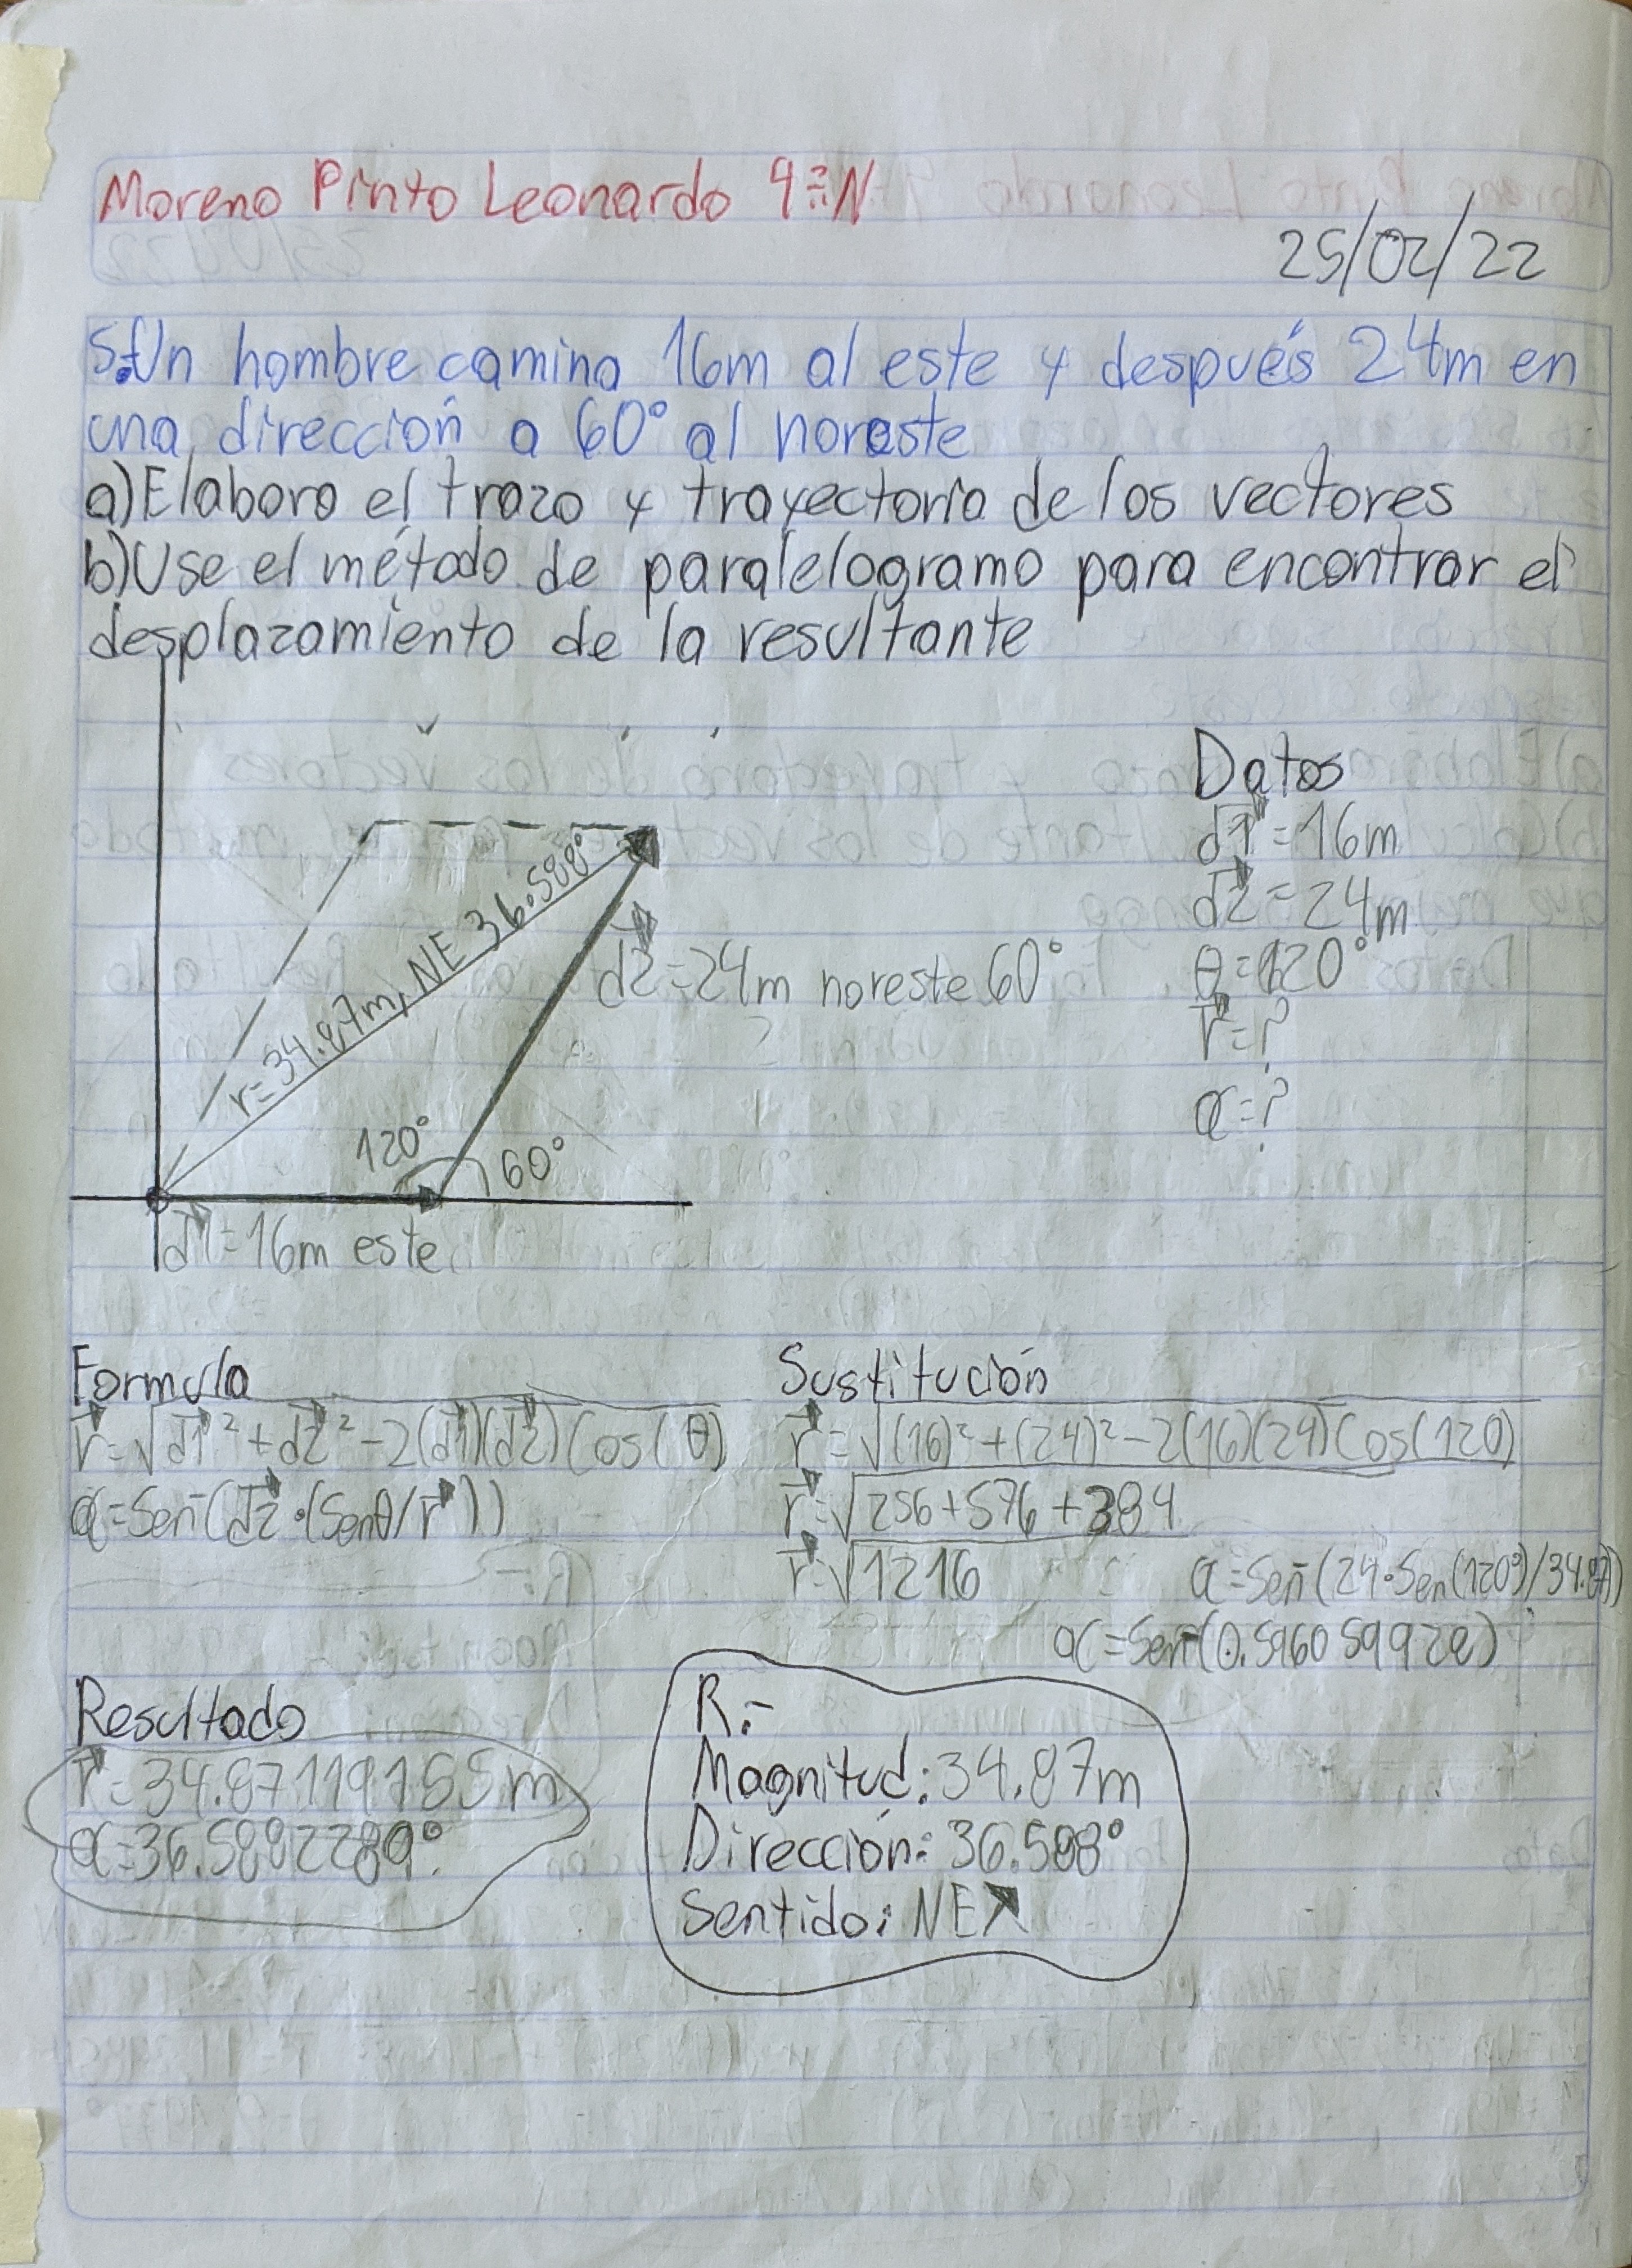 Moreno Pinto Leonardo 4°N
25/02/22
5.-Un hombre camina 16m al este y después 24m en
una dirección a 60° al noreste
a)Elabora el trazo y trayectoria de los vectores
b)Use el método de paralelogramo para encontrar el
desplazamiento de la resultante
Datos
d1=16m
d2=24m
θ=120°
r=?
α=?
r=34.87m, NE 36.588°
d2=24m noreste 60°
120°
60°
d1=16m este
Formula
r=√d1²+d2²-2(d1)(d2)Cos(θ)
α=Sen⁻(d2·(Senθ/r))
Sustitución
r=√(16)²+(24)²-2(16)(24)Cos(120)
r=√256+576+384
r=√1216
α=Sen⁻(24·Sen(120°)/34.87))
α=Sen⁻(0.5960599228)
Resultado
r=34.87119155m
α=36.5882289°
R.-
Magnitud: 34.87m
Dirección: 36.588°
Sentido: NE